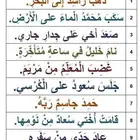 ذَهَبَ رَاشِدٌ إِلَى الْبَحْرِ.
سَكَبَ مُحَمَّدٌ الْمَاءَ عَلَى الْأَرْضِ.
صَعَدَ أَخِي عَلَى جِدَارِ جَارِي.
نَامَ خَلِيلٌ فِي سَاعَةٍ مُتَأَخِّرَةٍ.
غَضِبَ الْمُعَلِّمُ مِنْ مَرْيَمَ.
جَلَسَ سُعُودُ عَلَى الْكُرْسِيِّ.
حَمِدَ جَاسِمُ رَبَّهُ.
قَامَتْ أُخْتِي سُعَادُ مِنْ نَوْمِهَا.
عَادَ جَدِّي مِنْ سَفَرِهِ